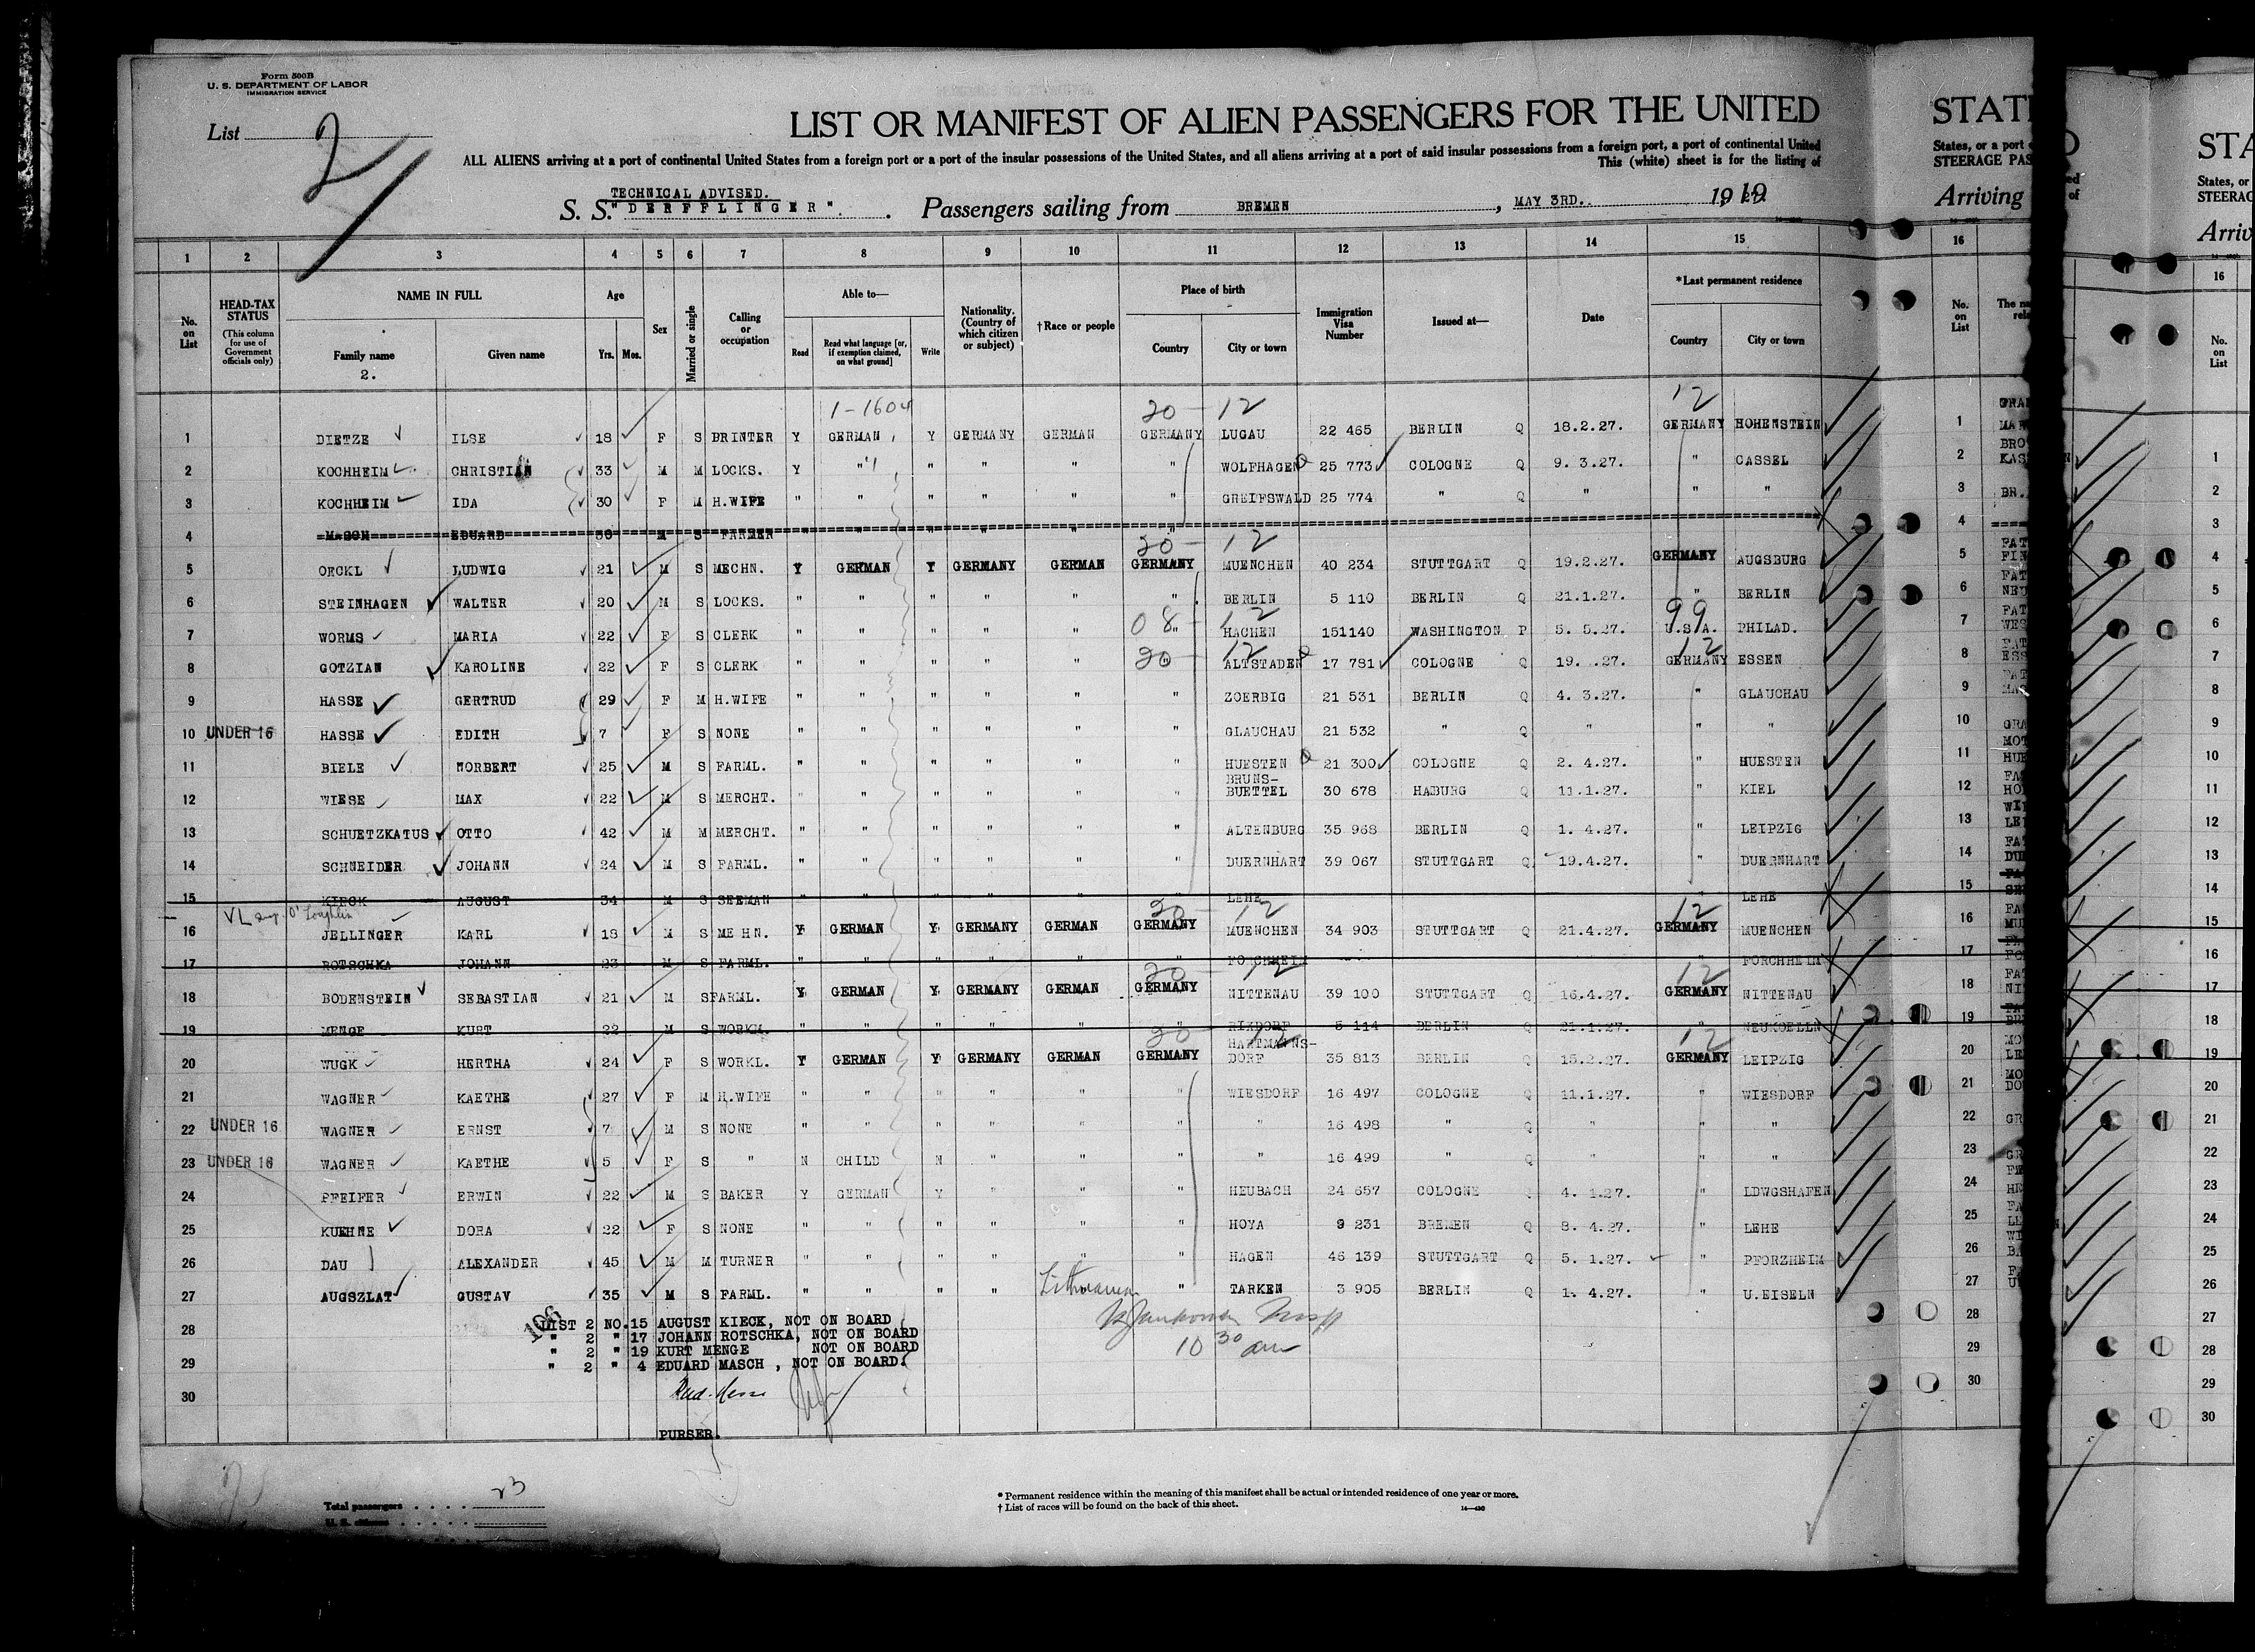 Form 500B
U. S. DEPARTMENT OF LABOR
IMMIGRATION SERVICE
List 2
LIST OR MANIFEST OF ALIEN PASSENGERS FOR THE UNITED
ALL ALIENS arriving at a port of continental United States from a foreign port or a port of the insular possessions of the United States, and all aliens arriving at a port of said insular possessions from a foreign port, a port of continental United
This (white) sheet is for the listing of
TECHNICAL ADVISED.
S. S. "DERFFLINGER". Passengers sailing from BREMEN, MAY 3RD.. 19
STAT
States, or a port
STEERAGE PAS
Arriving
STA
States, or
STEERAG
Arriv
1 2 3 4 5 6 7 8 9 10 11 12 13 14 15 16 16
No. on List
HEAD-TAX STATUS (This column for use of Government officials only)
NAME IN FULL Family name Given name
2.
Age Yrs. Mos.
Sex
Married or single
Calling or occupation
Able to— Read Read what language [or, if exemption claimed, on what ground] Write
Nationality. (Country of which citizen or subject)
†Race or people
Place of birth Country City or town
Immigration Visa Number
Issued at—
Date
*Last permanent residence Country City or town
No. on List
No. on List
1-1604 20 - 12 12
1 DIETZE ILSE 18 F S BRINTER Y GERMAN, Y GERMANY GERMAN GERMANY LUGAU 22 465 BERLIN Q 18.2.27. GERMANY HOHENSTEIN 1
2 KOCHHEIM CHRISTIAN 33 M M LOCKS. Y " " " " " WOLFHAGEN 25 773 COLOGNE Q 9. 3.27. " CASSEL 2
3 KOCHHEIM IDA 30 F M H.WIFE " " " " " " GREIFSWALD 25 774 " Q " " " 3
4 MASCH EDUARD 30 M S FARMER " " " " " " 4
20 - 12
5 ORCKL LUDWIG 21 M S MECHN. Y GERMAN Y GERMANY GERMAN GERMANY MUENCHEN 40 234 STUTTGART Q 19.2.27. GERMANY AUGSBURG 5
6 STEINHAGEN WALTER 20 M S LOCKS. " " " " " " BERLIN 5 110 BERLIN Q 21.1.27. " BERLIN 6
08 - 12 99
7 WORMS MARIA 22 F S CLERK " " " " " " HACHEN 151140 WASHINGTON P 5. 5.27. U.S.A. PHILAD. 7
20 - 12 12
8 GOTZIAN KAROLINE 22 F S CLERK " " " " " ALTSTADEN 17 781 COLOGNE Q 19. .27. GERMANY ESSEN 8
9 HASSE GERTRUD 29 F M H.WIFE " " " " " " ZOERBIG 21 531 BERLIN Q 4. 3.27. " GLAUCHAU 9
10 UNDER 16 HASSE EDITH 7 F S NONE " " " " " " GLAUCHAU 21 532 " Q " " " 10
11 BIELE NORBERT 25 M S FARML. " " " " " " HUESTEN 21 300 COLOGNE Q 2. 4.27. " HUESTEN 11
12 WIESE MAX 22 M S MERCHT. " " " " " " BRUNS-BUETTEL 30 678 HABURG Q 11.1.27. " KIEL 12
13 SCHUETZKATUS OTTO 42 M M MERCHT. " " " " " " ALTENBURG 35 968 BERLIN Q 1. 4.27. " LEIPZIG 13
14 SCHNEIDER JOHANN 24 M S FARML. " " " " " " DUERNHART 39 067 STUTTGART Q 19.4.27. " DUERNHART 14
15 KIECK AUGUST 34 M S SEEMAN " " " " " " LEHE " LEHE 15
VL O'Loughlin 20 - 12 12
16 JELLINGER KARL 18 M S ME HN. Y GERMAN Y GERMANY GERMAN GERMANY MUENCHEN 34 903 STUTTGART Q 21.4.27. GERMANY MUENCHEN 16
17 ROTSCHKA JOHANN 23 M S FARML. " " " " " " FORCHHEIM " FORCHHEIM 17
20 - 12 12
18 BODENSTEIN SEBASTIAN 21 M S FARML. Y GERMAN Y GERMANY GERMAN GERMANY NITTENAU 39 100 STUTTGART Q 16.4.27. GERMANY NITTENAU 18
19 MENGE KURT 22 M S WORKM. " " " " " " RIXDORF 5 114 BERLIN Q 21.1.27. " NEUKOELLN 19
20 - 12 12
20 WUGK HERTHA 24 F S WORKL. Y GERMAN Y GERMANY GERMAN GERMANY HARTMANNS-DORF 35 813 BERLIN Q 15.2.27. GERMANY LEIPZIG 20
21 WAGNER KAETHE 27 F M H.WIFE " " " " " " WIESDORF 16 497 COLOGNE Q 11.1.27. " WIESDORF 21
22 UNDER 16 WAGNER ERNST 7 M S NONE " " " " " " " 16 498 " Q " " " 22
23 UNDER 16 WAGNER KAETHE 5 F S " N CHILD N " " " " 16 499 " Q " " " 23
24 PFEIFER ERWIN 22 M S BAKER Y GERMAN Y " " " HEUBACH 24 657 COLOGNE Q 4. 1.27. " LDWGSHAFEN 24
25 KUEHNE DORA 22 F S NONE " " " " " " HOYA 9 231 BREMEN Q 8. 4.27. " LEHE 25
26 DAU ALEXANDER 45 M M TURNER " " " " " " HAGEN 46 139 STUTTGART Q 5. 1.27. " PFORZHEIM 26
27 AUGSZLAT GUSTAV 35 M S FARML. " " " " Lithuanian " TARKEN 3 905 BERLIN Q 1. 4.27. " U.EISELN 27
28 LIST 2 NO.15 AUGUST KIECK, NOT ON BOARD 28
" 2 " 17 JOHANN ROTSCHKA, NOT ON BOARD
" 2 " 19 KURT MENGE NOT ON BOARD
29 " 2 " 4 EDUARD MASCH , NOT ON BOARD. 29
10 30 am
30 30
PURSER.
Total passengers . . . . 23
U. S. citizens . . . . .
* Permanent residence within the meaning of this manifest shall be actual or intended residence of one year or more.
† List of races will be found on the back of this sheet.